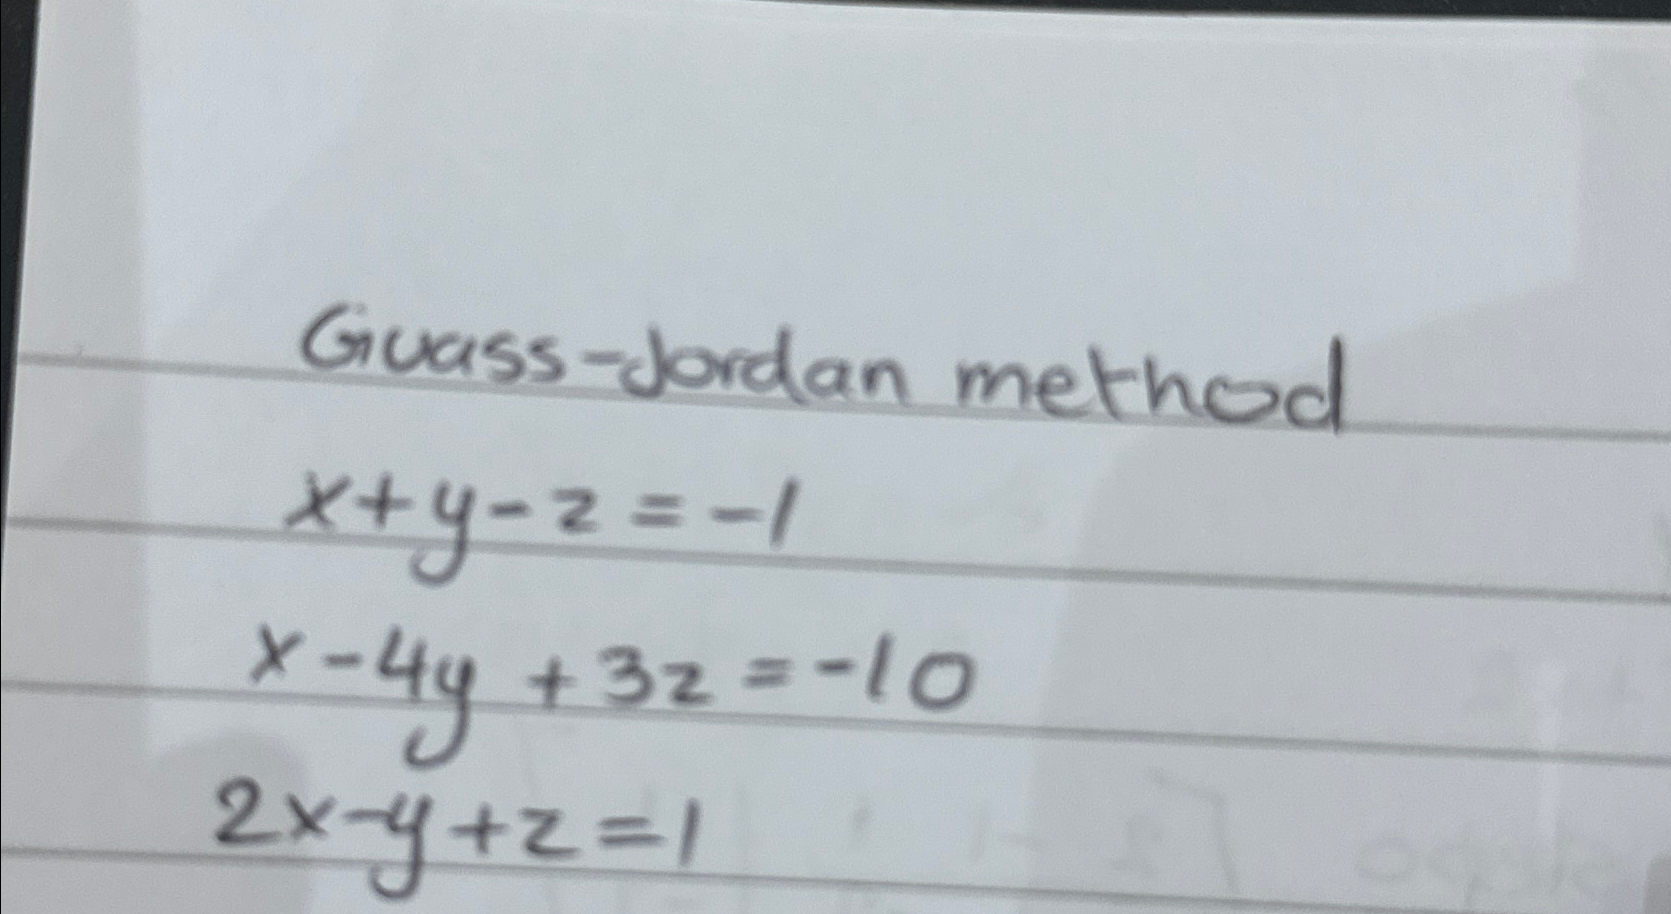 Guass-Jordan method
x+y-z=-1
x-4y+3z=-10
2x-y+z=1